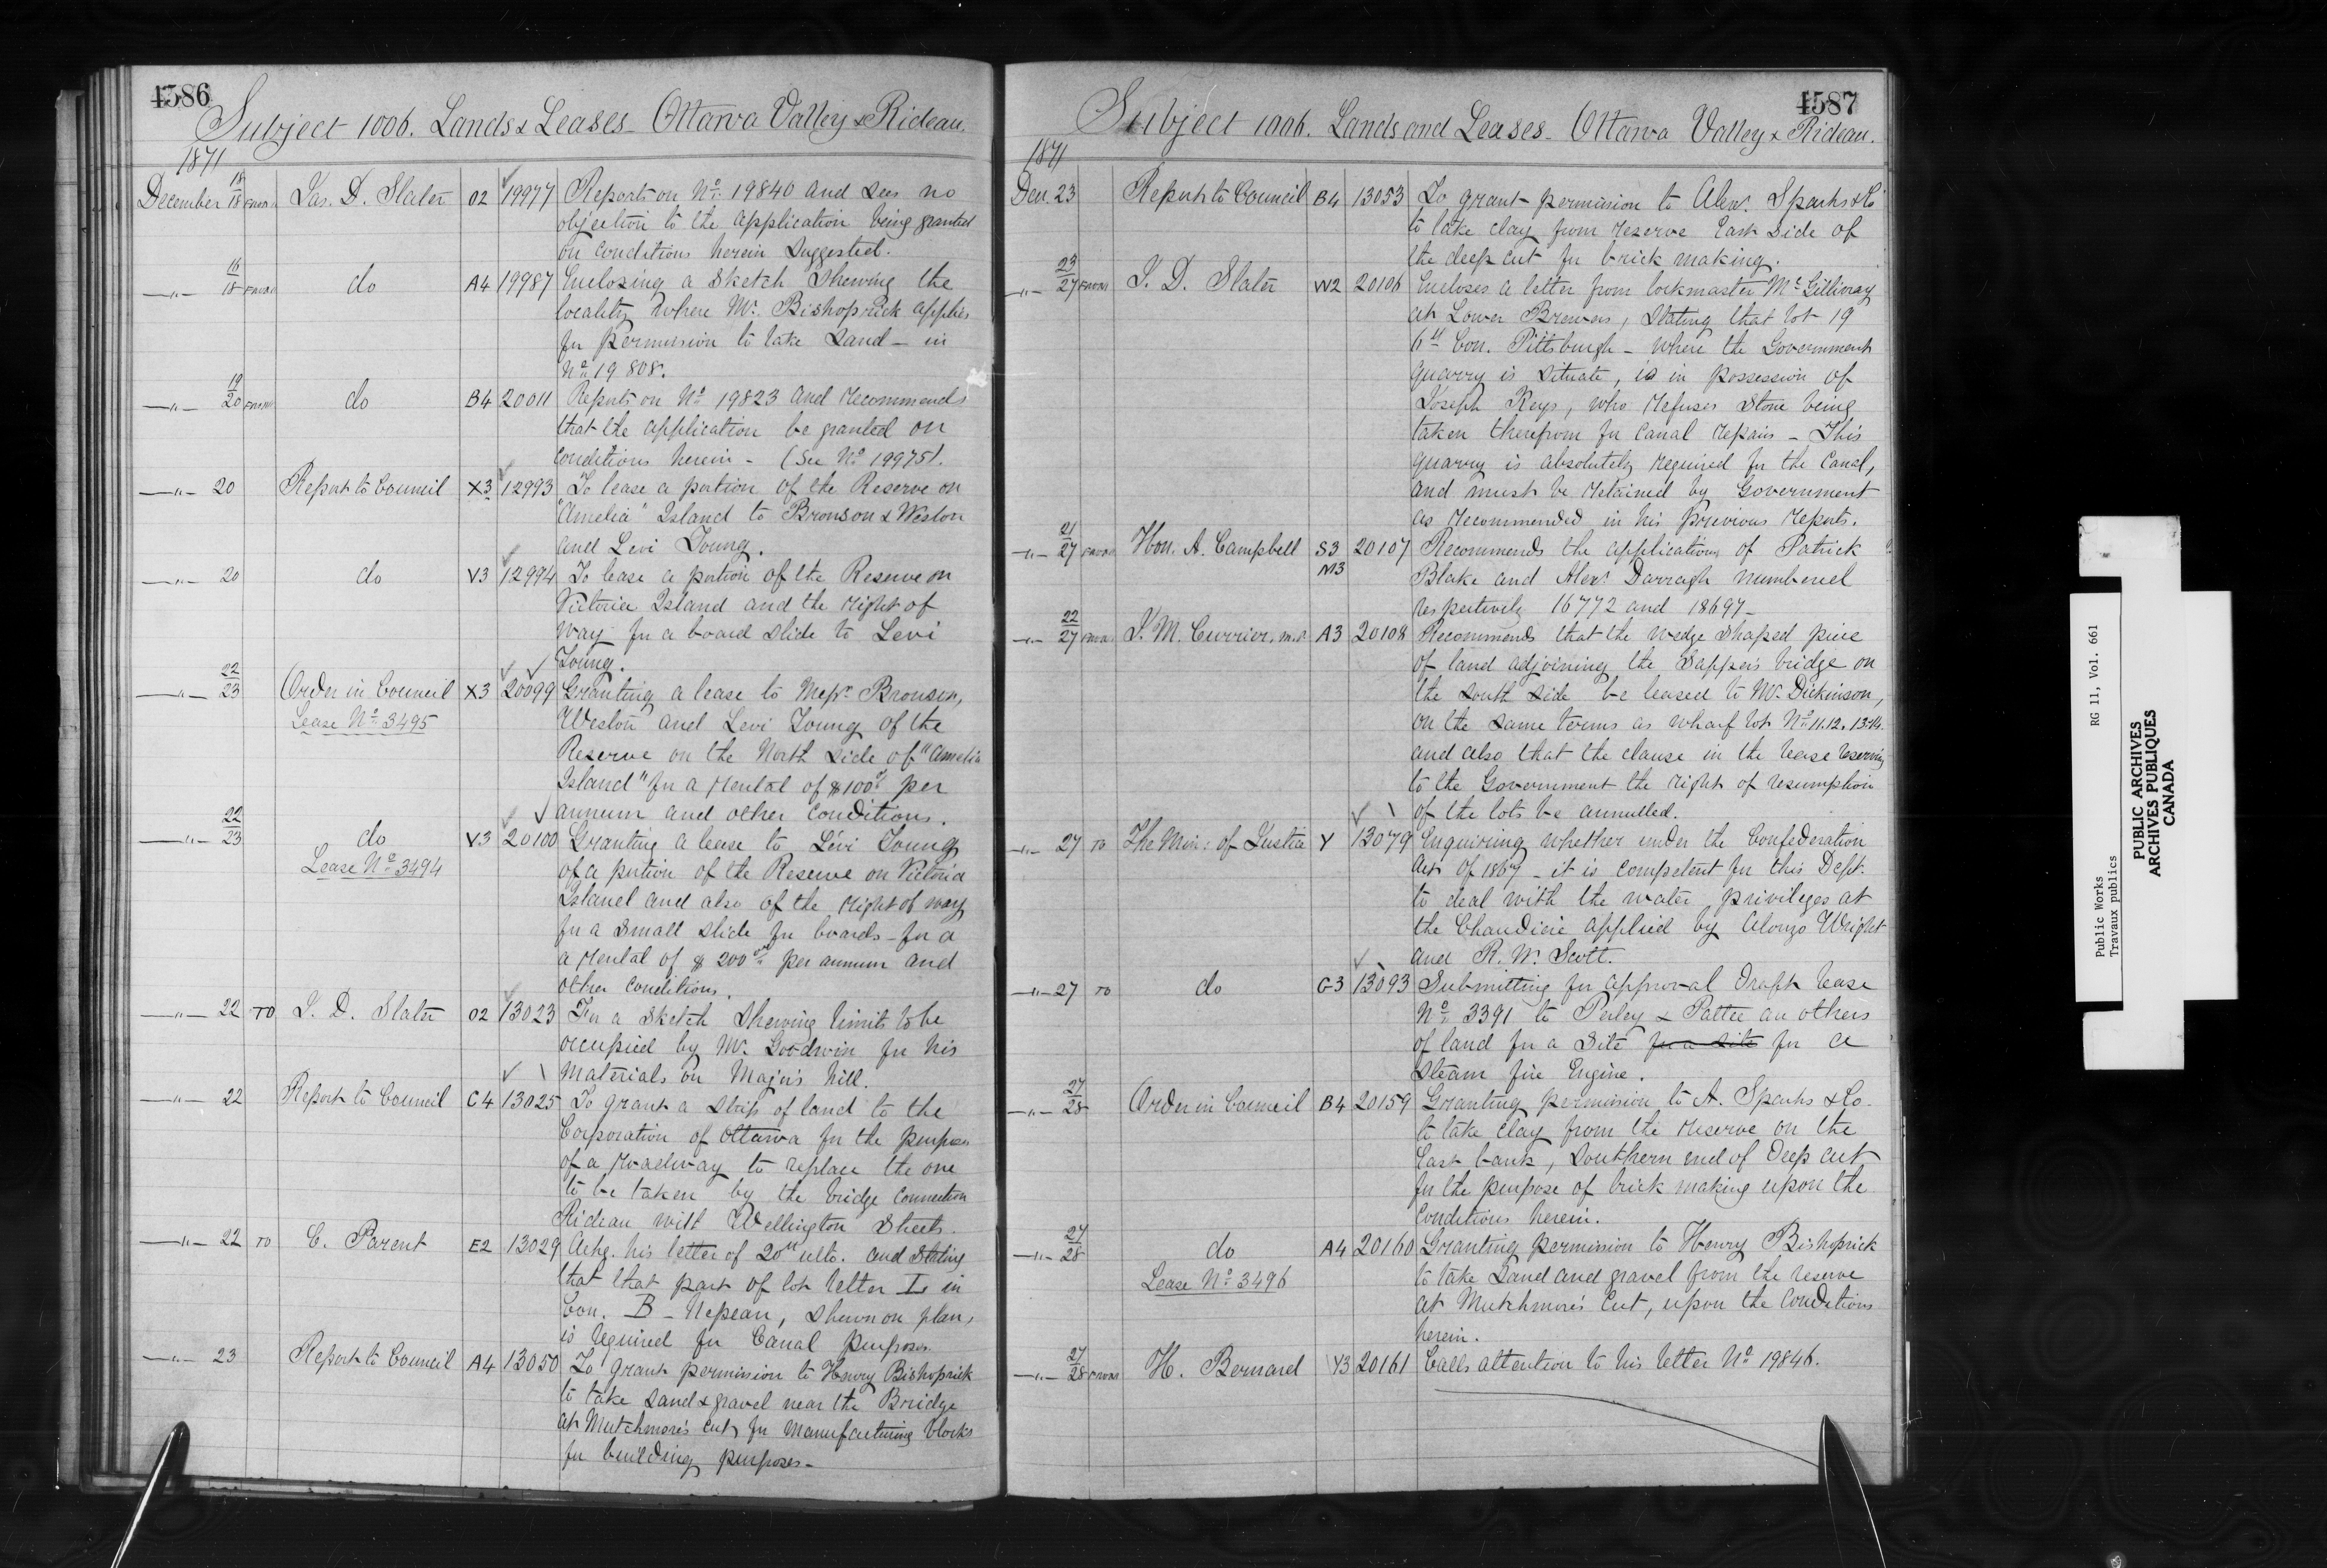 4586
Subject 1006. Lands & Leases - Ottawa Valley & Rideau.
1871
December 18/18 FROM Jas. D. Slater O2 19977 Reports on No. 19840 and sees no
objection to the application being granted
on conditions herein suggested.
—"— 16/18 FROM do A4 19987 Enclosing a sketch shewing the
locality where Mr. Bishoprick applies
for permission to take sand - in
No. 19808.
—"— 19/20 FROM do B4 20011 Reports on No. 19823 and recommends
that the application be granted on
conditions herein - (See No. 19975).
—"— 20 Report to Council X3 12993 To lease a portion of the Reserve on
"Amelia" Island to Bronson & Weston
and Levi Young.
—"— 20 do V3 12994 To lease a portion of the Reserve on
Victoria Island and the right of
way for a board slide to Levi
Young.
—"— 22/23 Order in Council X3 20099 Granting a lease to Messrs. Bronson,
Lease No. 3495 Weston and Levi Young of the
Reserve on the North side of "Amelia
Island" for a rental of $100 per
annum and other conditions.
—"— 22/23 do V3 20100 Granting a lease to Levi Young
Lease No. 3494 of a portion of the Reserve on Victoria
Island and also of the right of way
for a small slide for boards - for a
a rental of $200 per annum and
other conditions.
—"— 22 TO J. D. Slater O2 13023 For a sketch shewing limits to be
occupied by Mr. Goodwin for his
materials on Major's hill.
—"— 22 Report to Council C4 13025 To grant a strip of land to the
Corporation of Ottawa for the purposes
of a roadway to replace the one
to be taken by the bridge connection
Rideau with Wellington Streets.
—"— 22 TO E. Parent E2 13029 Ackg. his letter of 20th ulto. and stating
that that part of lot letter I in
Con. B - Nepean, shewn on plan,
is required for Canal purposes.
—"— 23 Report to Council A4 13050 To grant permission to Henry Bishoprick
to take sand & gravel near the Bridge
at Mutchmore's cut, for manufacturing blocks
for building purposes -
4587
Subject 1006. Lands and Leases - Ottawa Valley & Rideau.
1871
Dec. 23 Report to Council B4 13053 To grant permission to Alexr. Sparks & Co
to take clay from reserve East side of
the deep cut for brick making.
—"— 23/27 FROM J. D. Slater W2 20106 Encloses a letter from lockmaster McGillivray
at Lower Brewers, stating that lot 19
6th Con. Pittsburgh - where the Government
quarry is situate, is in possession of
Joseph Keys, who refuses stone being
taken therefrom for canal repairs - This
quarry is absolutely required for the Canal,
and must be retained by Government
as recommended in his previous reports.
—"— 21/27 FROM Hon. A. Campbell S3 20107 Recommends the applications of Patrick
M3 Blake and Alexr. Darragh numbered
respectively 16772 and 18697 -
—"— 22/27 FROM J. M. Currier, M.P. A3 20108 Recommends that the wedge shaped piece
of land adjoining the Sappers bridge on
the South side be leased to Mr. Dickinson,
on the same terms as wharf lots No. 11. 12. 13 & 14.
and also that the clause in the lease reserving
to the Government the right of resumption
of the lots be annulled.
—"— 27 TO The Min: of Justice Y 13079 Enquiring whether under the Confederation
Act of 1867 - it is competent for this Dept.
to deal with the water privileges at
the Chaudiere applied by Alonzo Wright
and R. W. Scott.
—"— 27 TO do G3 13093 Submitting for approval draft lease
No. 3391 to Perley & Pattee an others
of land for a site for a site for a
steam fire Engine.
—"— 27/28 Order in Council B4 20159 Granting permission to A. Sparks & Co.
to take clay from the reserve on the
East bank, Southern end of deep cut
for the purpose of brick making upon the
conditions herein.
—"— 27/28 do A4 20160 Granting permission to Henry Bishoprick
Lease No. 3496 to take sand and gravel from the reserve
at Mutchmore's Cut, upon the conditions
herein.
—"— 27/28 FROM H. Bernard Y3 20161 Calls attention to his letter No. 19846.
Public Works RG 11, Vol. 661
Travaux publics
PUBLIC ARCHIVES
ARCHIVES PUBLIQUES
CANADA